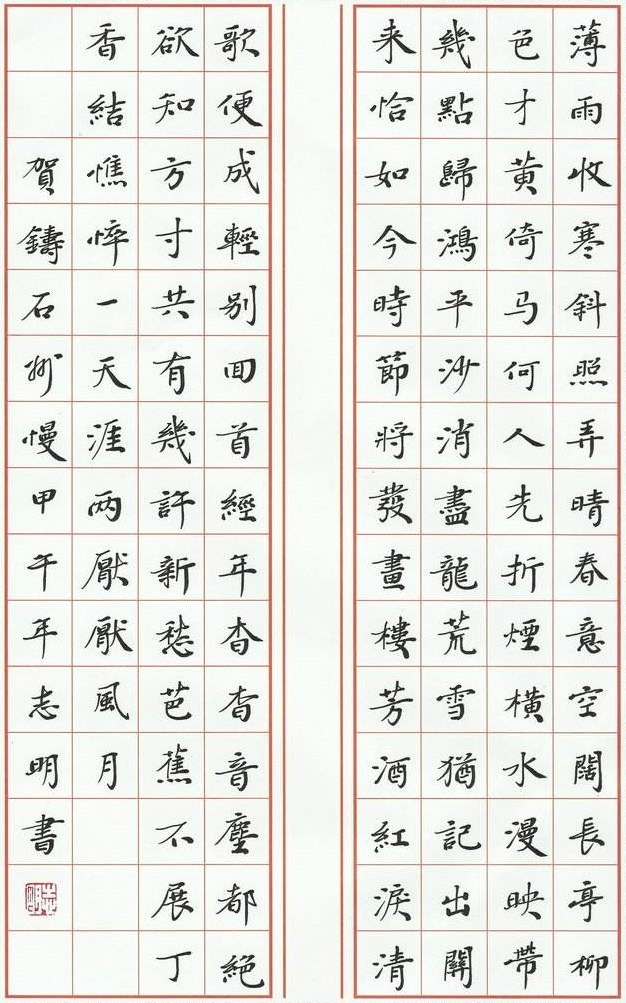 薄雨收寒斜照弄晴春意空闊長亭柳
色才黄倚马何人先折煙橫水漫映帶
幾點歸鴻平沙消盡龍荒雪猶記出關
来恰如今時節將發畫樓芳酒紅淚清
歌便成輕别囬首經年杳杳音塵都絕
欲知方寸共有幾許新愁芭蕉不展丁
香結憔悴一天涯两厭厭風月
賀鑄石州慢甲午年志明書
志明